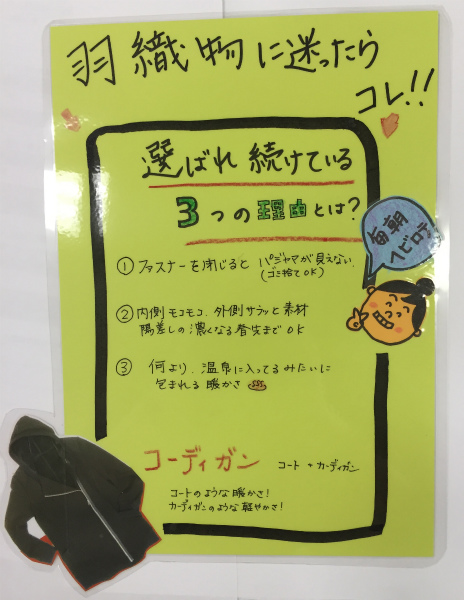 羽織物に迷ったら
コレ!!
選ばれ続けている
3つの理由とは?
毎朝
ヘビロテ
① ファスナーを閉じると パジャマが見えない
(ゴミ捨てOK)
② 内側モコモコ、外側サラッと素材
陽差しの濃くなる春先までOK
③ 何より、温泉に入ってるみたいに
包まれる暖かさ♨
コーディガン コート + カーディガン
コートのような暖かさ!
カーディガンのような軽やかさ!